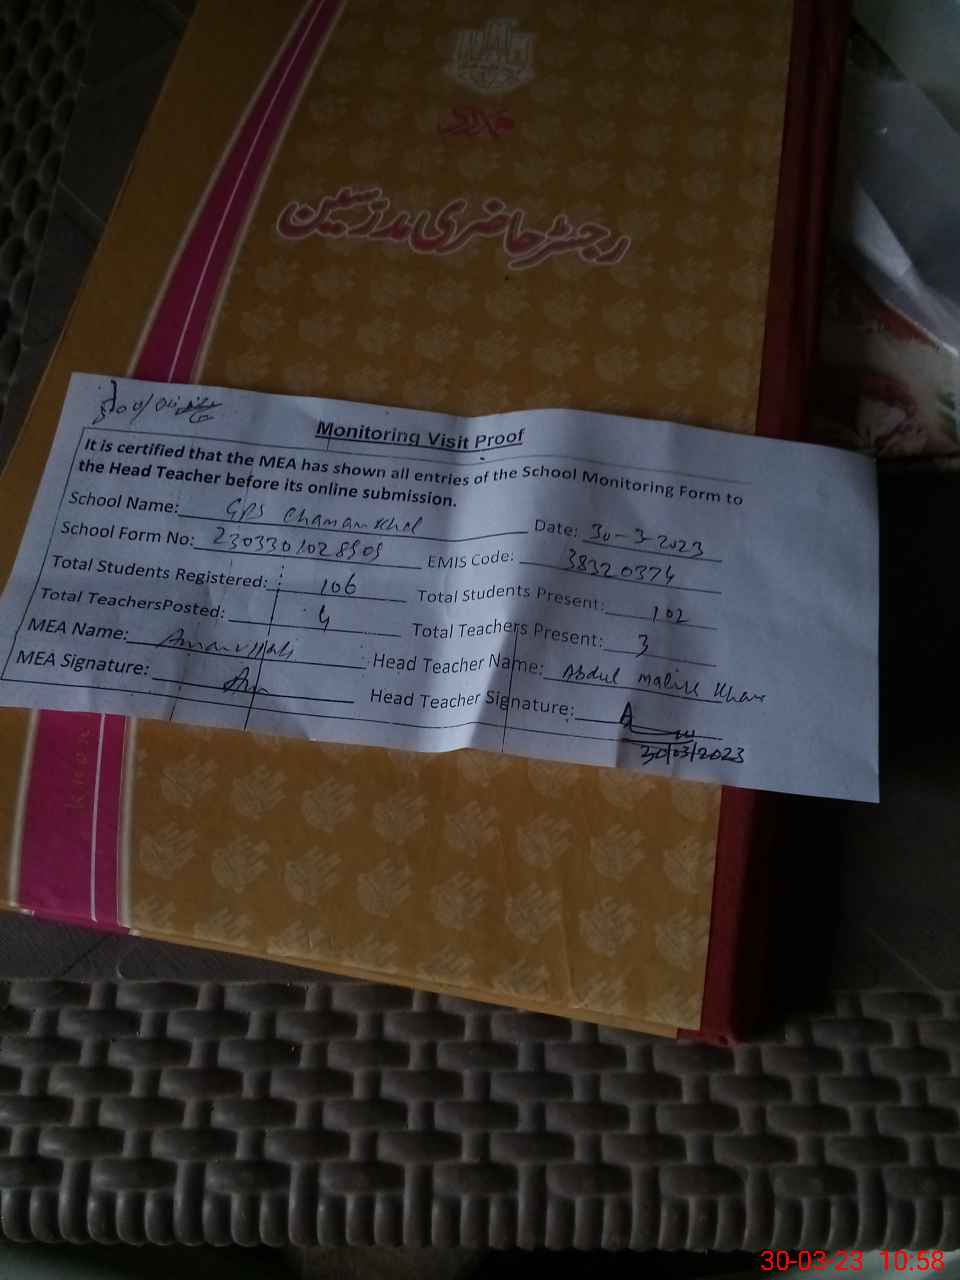 رجسٹر حاضری مدرسین
Monitoring Visit Proof
It is certified that the MEA has shown all entries of the School Monitoring Form to
the Head Teacher before its online submission.
School Name: GPS Chaman Khel Date: 30-3-2023
School Form No: EMIS Code: 38320374
Total Students Registered: 106 Total Students Present: 102
Total TeachersPosted: 4 Total Teachers Present: 3
MEA Name: Amanullah Head Teacher Name: Abdul malik Khan
MEA Signature: Head Teacher Signature:
30/03/2023
30-03-23 10:58